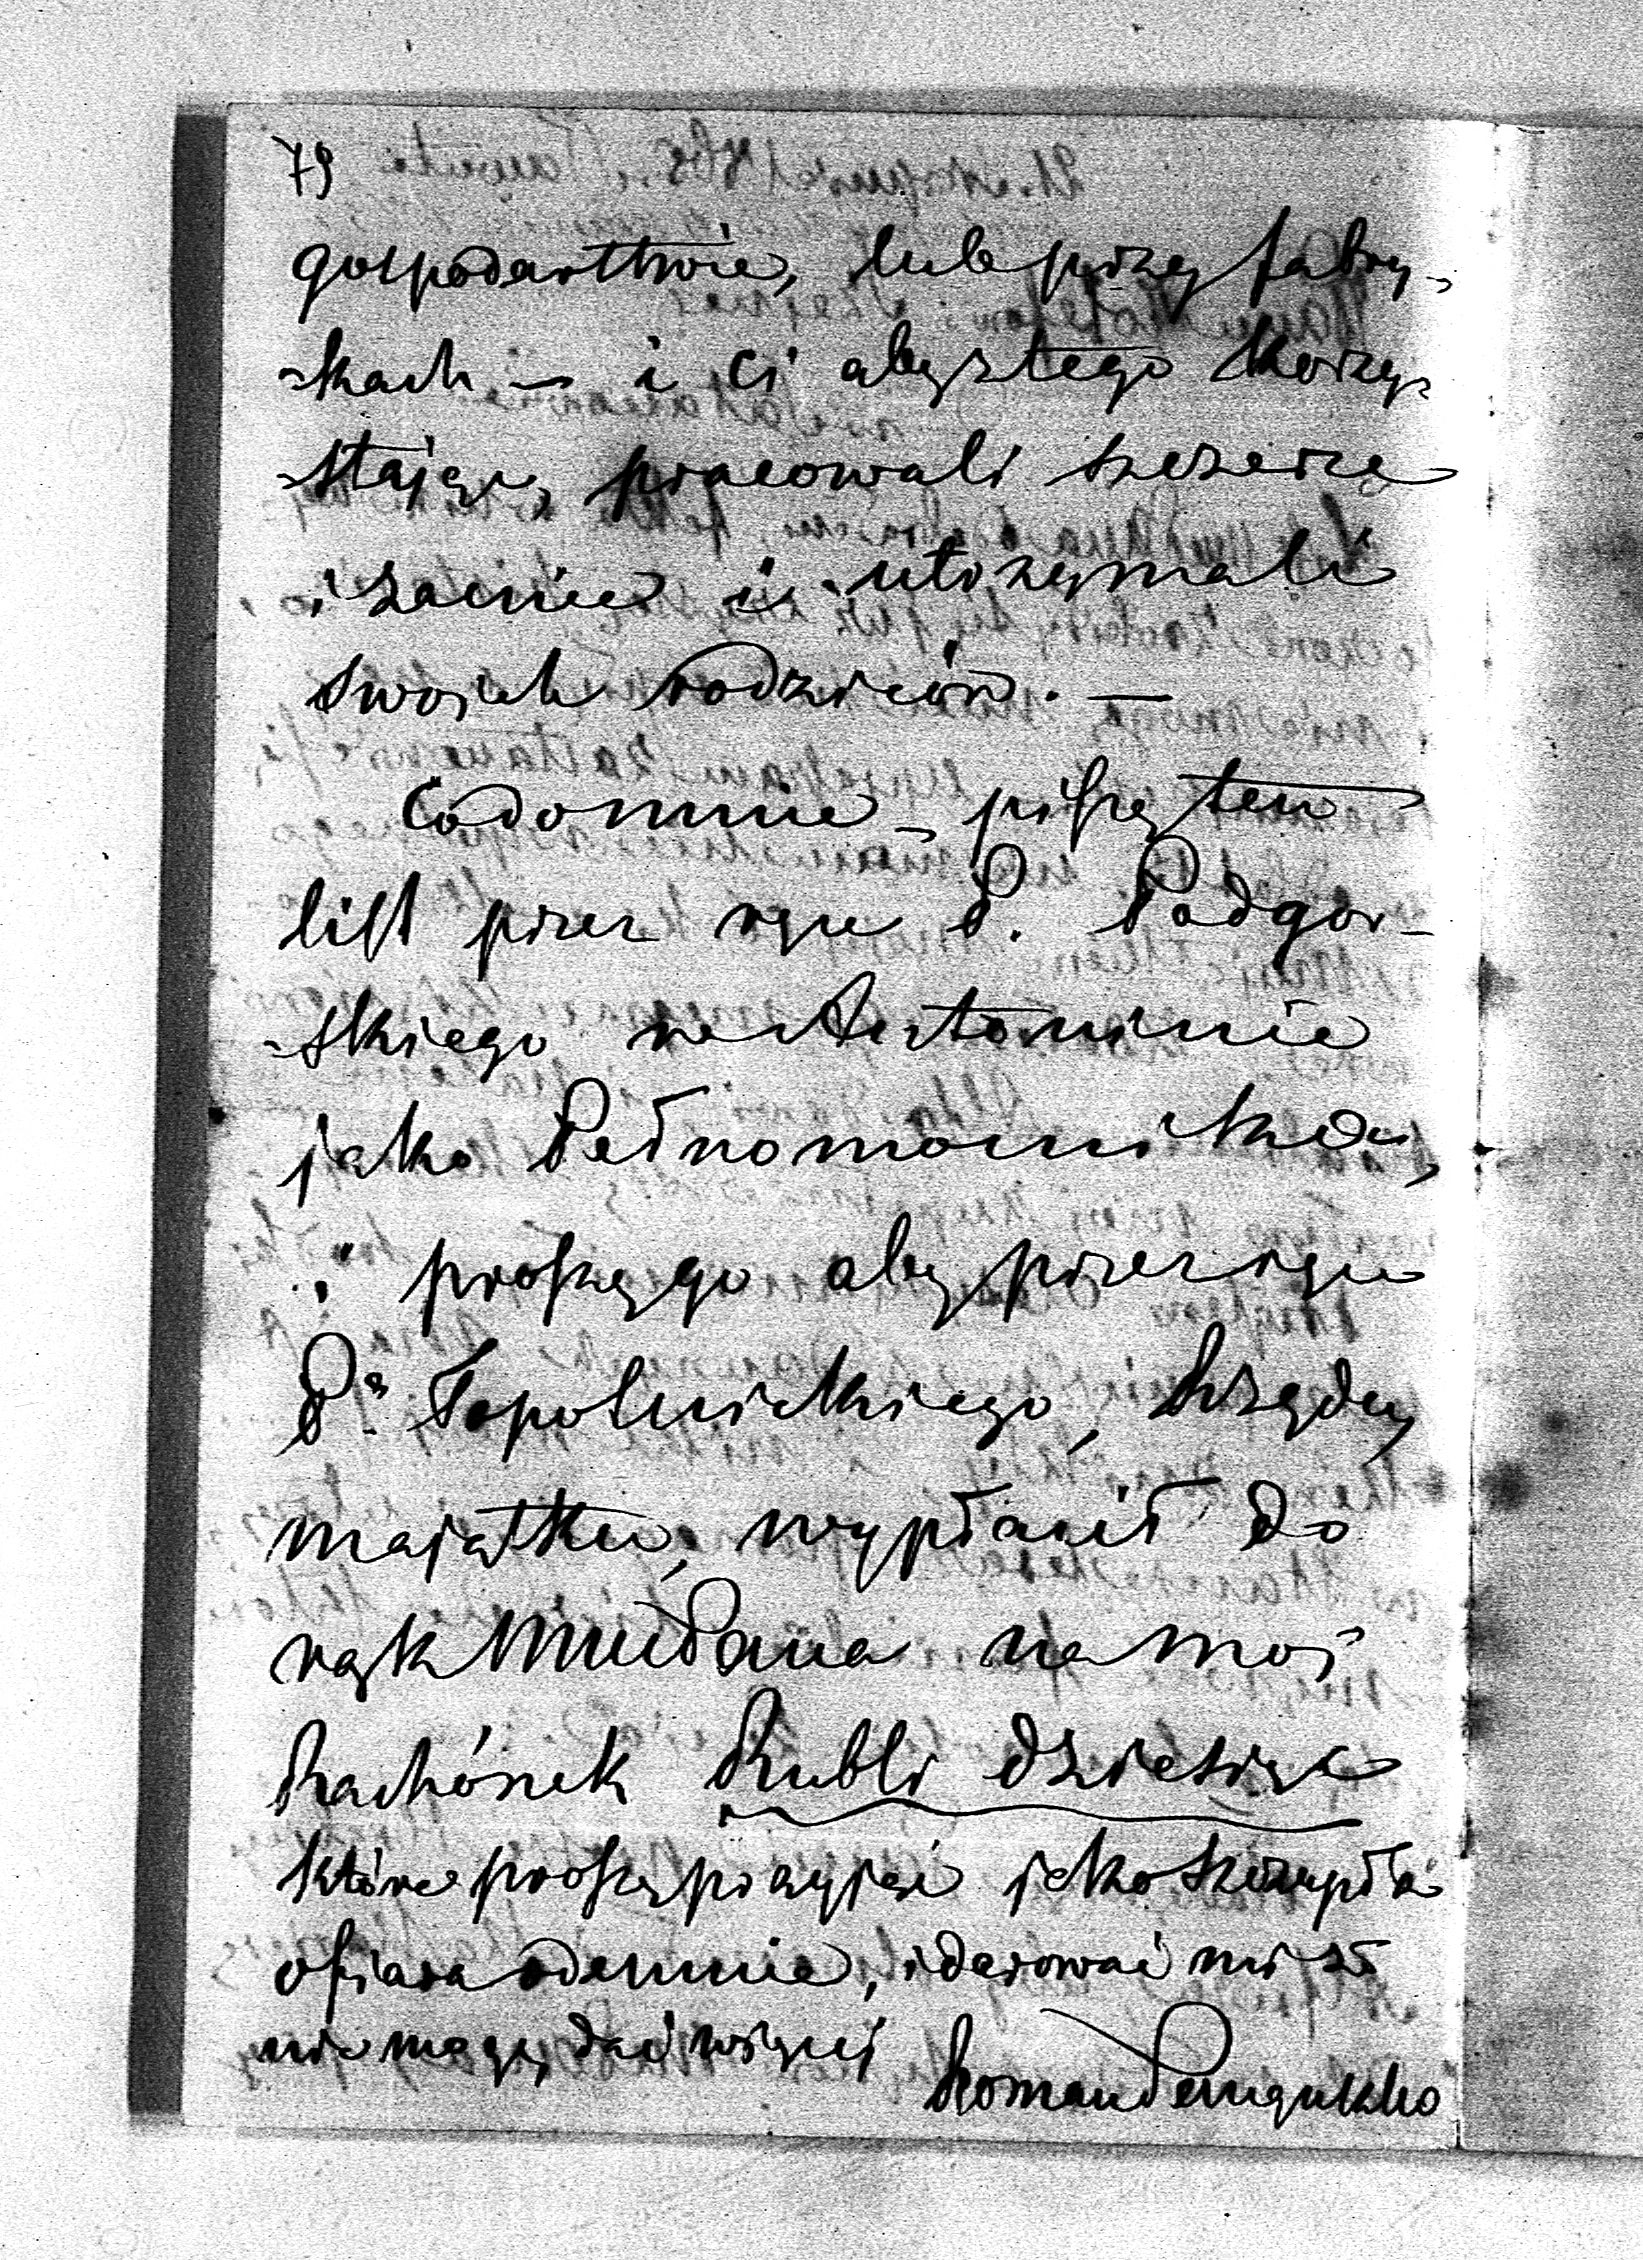 79
gospodarstwie, lub przy fabry-
-kach — i ci aby z tego korzy-
-stając, pracowali szczerze
i zacnie i utrzymali
swoich rodziców. —
Co do mnie piszę ten
list przez ręce P. Podgor-
-skiego w Antoninie
jako Pełnomocnika,
i proszę go aby przez ręce
Pª Topolnickiego, Rządcy
majątku, wypłacił do
rąk Pana na moj
Rachónek Rubli dziesięć
które proszę przyjąć jako szczupłą
ofiarę odemnie, i darować mi że
nie mogę dać więcej
Roman Sanguszko